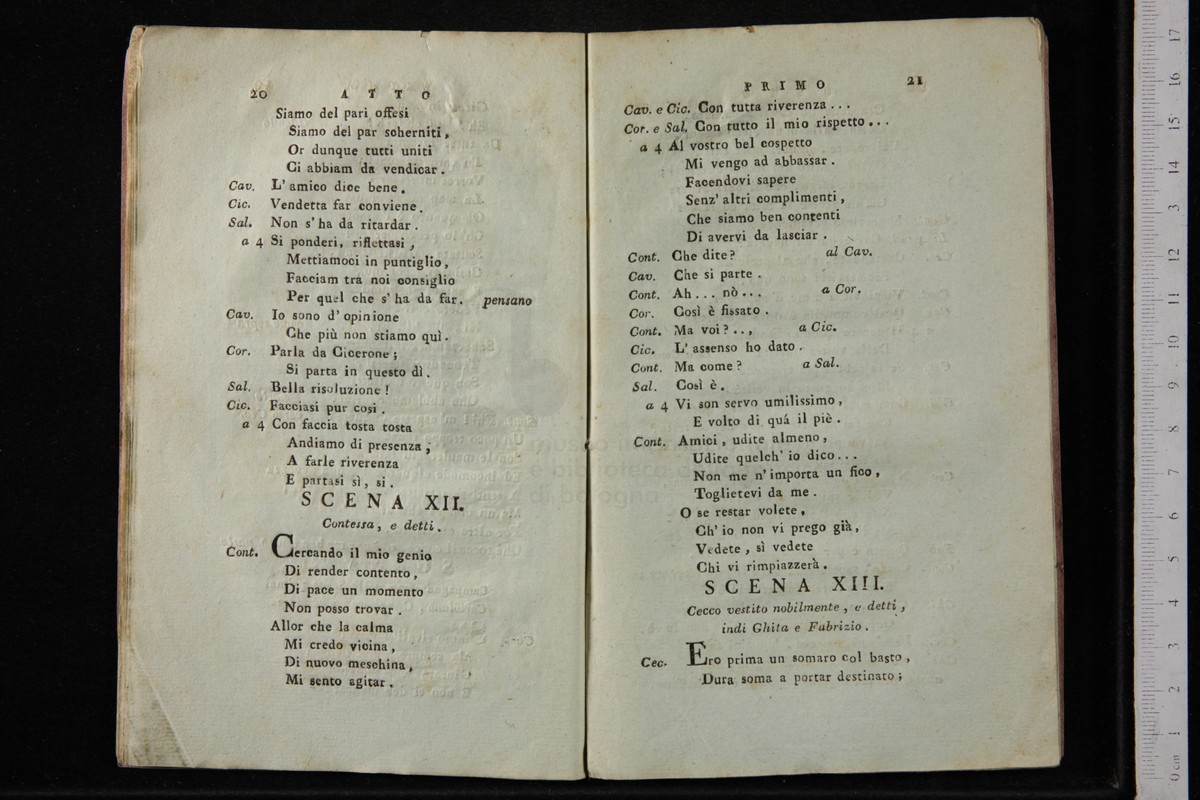 20 ATTO
Siamo del pari offesi
Siamo del par soherniti,
Or dunque tutti uniti
Ci abbiam da vendicar.
Cav. L' amico dice bene.
Cic. Vendetta far conviene.
Sal. Non s' ha da ritardar.
a 4 Si ponderi, riflettasi,
Mettiamoci in puntiglio,
Facciam tra noi consiglio
Per quel che s' ha da far. pensano
Cav. Io sono d' opinione
Che più non stiamo quì.
Cor. Parla da Cicerone;
Si parta in questo dì.
Sal. Bella risoluzione!
Cic. Facciasi pur così.
a 4 Con faccia tosta tosta
Andiamo di presenza;
A farle riverenza
E partasi sì, si.
SCENA XII.
Contessa, e detti.
Cont. Cercando il mio genio
Di render contento,
Di pace un momento
Non posso trovar.
Allor che la calma
Mi credo vicina,
Di nuovo meschina,
Mi sento agitar.
PRIMO 21
Cav. e Cic. Con tutta riverenza...
Cor. e Sal. Con tutto il mio rispetto...
a 4 Al vostro bel cospetto
Mi vengo ad abbassar.
Facendovi sapere
Senz' altri complimenti,
Che siamo ben contenti
Di avervi da lasciar.
Cont. Che dite? al Cav.
Cav. Che si parte.
Cont. Ah... nò... a Cor.
Cor. Così è fissato.
Cont. Ma voi?.., a Cic.
Cic. L' assenso ho dato.
Cont. Ma come? a Sal.
Sal. Così è.
a 4 Vi son servo umilissimo,
E volto di quá il piè.
Cont. Amici, udite almeno,
Udite quelch' io dico...
Non me n' importa un fico,
Toglietevi da me.
O se restar volete,
Ch' io non vi prego già,
Vedete, sì vedete
Chi vi rimpiazzerà.
SCENA XIII.
Cecco vestito nobilmente, e detti,
indi Ghita e Fabrizio.
Cec. Ero prima un somaro col basto,
Dura soma a portar destinato;